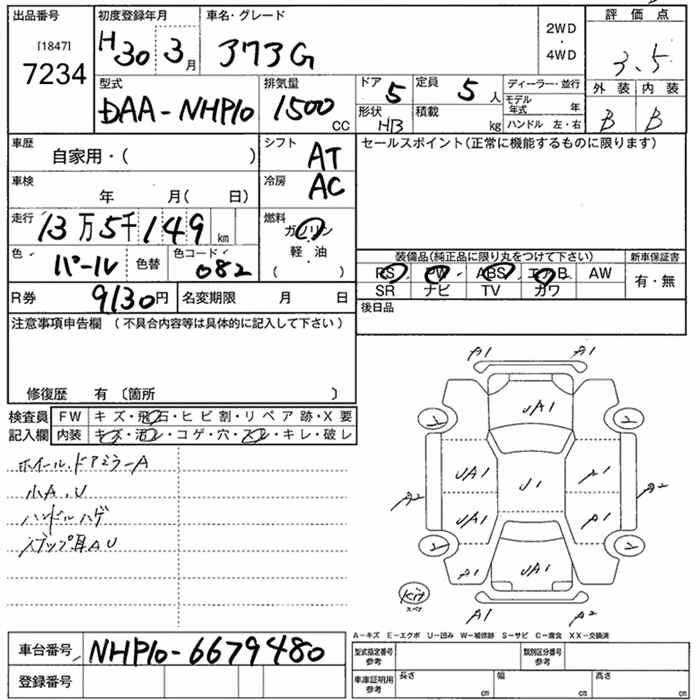 出品番号 初度登録年月 車名・グレード 評価点
[1847]
7234
H30 3月 373G 2WD・4WD 3.5
型式 排気量 ドア 5 定員 5人 ディーラー・並行 外装 内装
DAA-NHP10 1500CC 形状 HB 積載 kg モデル年式 年 B B
ハンドル 左・右
車歴 自家用・( ) シフト AT セールスポイント(正常に機能するものに限ります)
車検 年 月( 日) 冷房 AC
走行 13万5千149km 燃料 ガソリン
軽油
( )
色 パール 色替 色コード 082 装備品(純正品に限り丸をつけて下さい) 新車保証書
PS PW ABS エアB AW 有・無
SR ナビ TV カワ
R券 9130円 名変期限 月 日 後日品
注意事項申告欄 (不具合内容等は具体的に記入して下さい)
修復歴 有 〔箇所 〕
検査員 FW キズ・飛石・ヒビ割・リペア跡・X要
記入欄 内装 キズ・汚レ・コゲ・穴・スレ・キレ・破レ
ホイール、ドアミラーA
小A、U
ハンドルハゲ
ステップ耳AU
A1 A1
UA1
UA1 A1
A2 U1 A2
UA1 A1
A1 UA1
kit
スペア
A1 A2
A−キズ E−エクボ U−凹み W−補修跡 S−サビ C−腐食 XX−交換済
車台番号 NHP10-6679480 型式指定番号 参考 類別区分番号 参考
登録番号 車庫証明用 参考 長さ cm 幅 cm 高さ cm